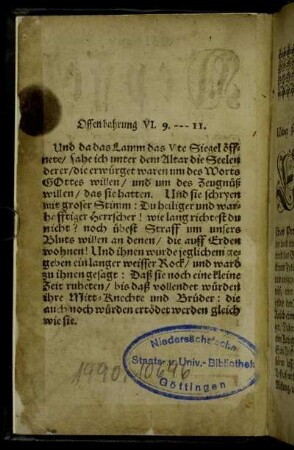 Offenbahrung VI. 9. --- 11.
Und da das Lamm das Vte Siegel öff-
nete/ sahe ich unter dem Altar die Seelen
derer/ die erwürget waren um des Worts
GOttes willen/ und um des Zeugnüß
willen/ das sie hatten. Und sie schryen
mit groser Stimm: Du heiliger und war-
hafftiger Herrscher! wie lang richtest du
nicht? noch übest Straff um unsers
Bluts willen an denen/ die auff Erden
wohnen! Und ihnen wurde jeglichem ge-
geben ein langer weisser Rock/ und ward
zu ihnen gesagt: Daß sie noch eine kleine
Zeit ruheten/ bis daß vollendet würden
ihre Mitt-Knechte und Brüder: die
auch noch würden ertödet werden gleich
wie sie.
Niedersächsische
Staats- u. Univ.-Bibliothek
Göttingen
1990. 10646